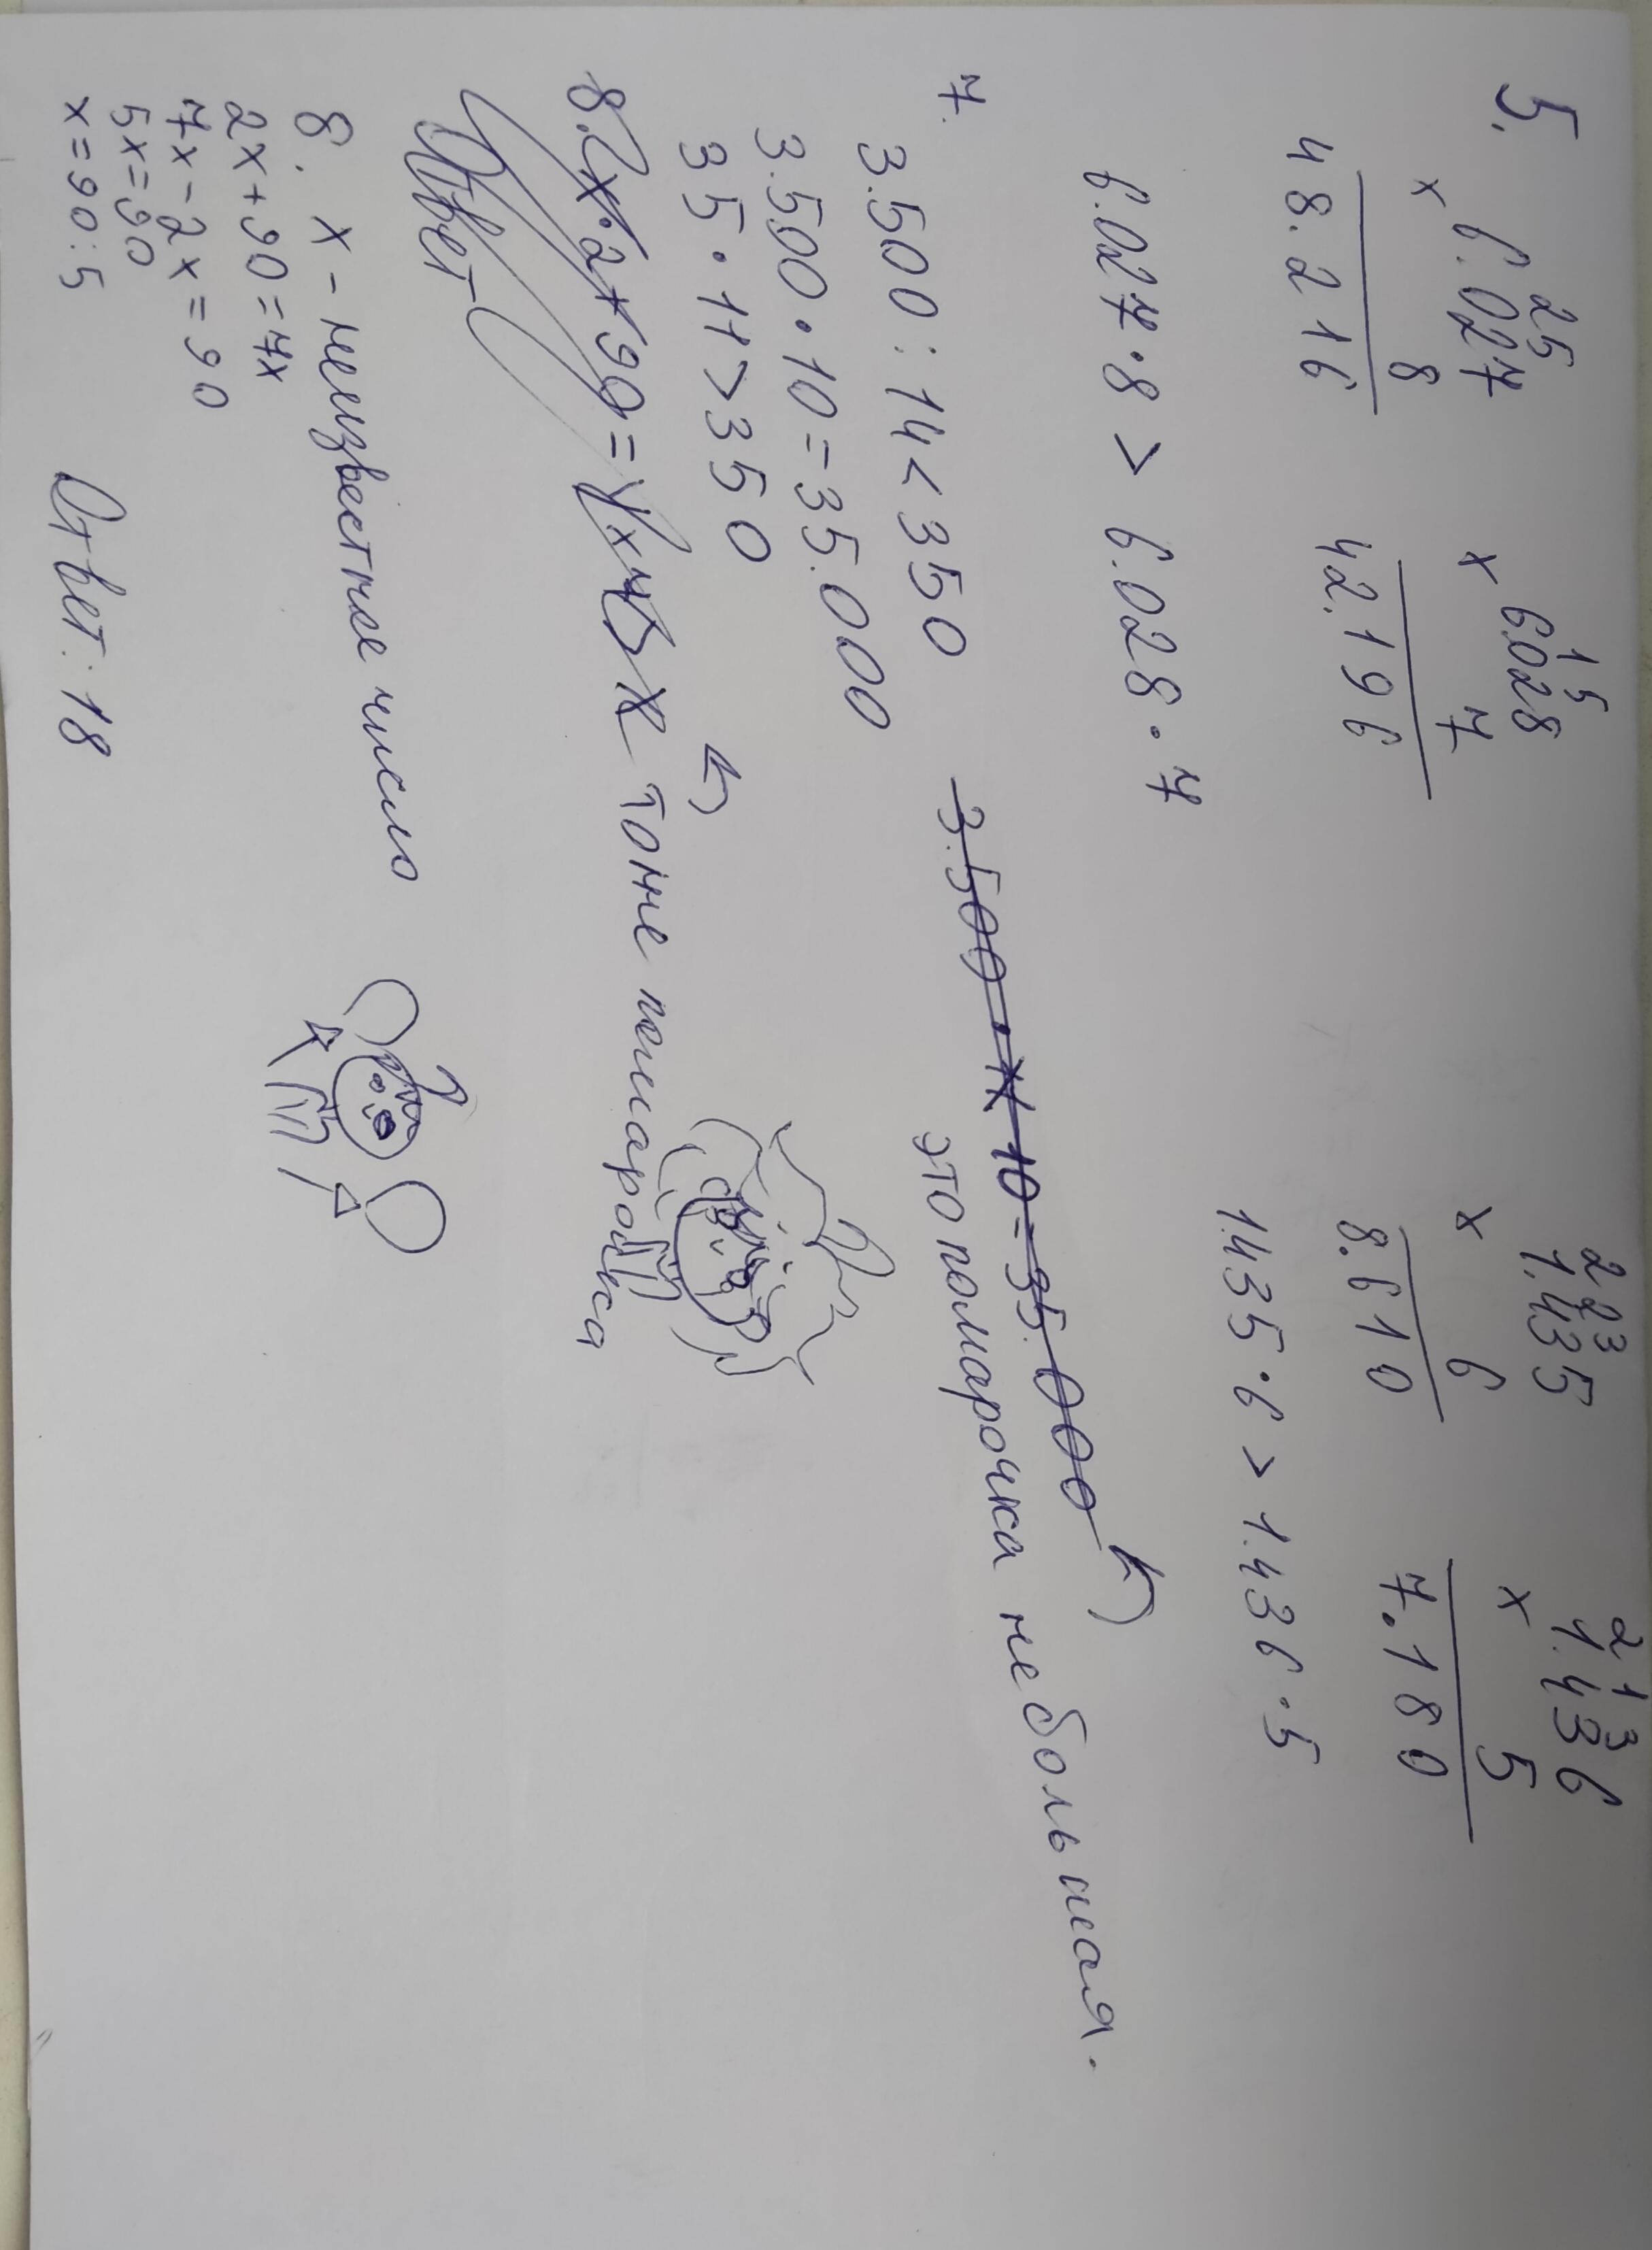 5.
25 15 223 213
× 6.027 × 6028 × 1.435 × 1.436
8 7 6 5
48.216 42.196 8.610 7.180
6.027·8 > 6.028·7 1.435·6 > 1.436·5
7. 3.500·10=35.000
это помарочка небольшая.
3.500:14<350
3.500·10=35.000
35·11>350
8. x·2+90= x тоже помарочка
Ответ
8. x – неизвестное число
2x+90=7x
7x-2x=90
5x=90
x=90:5 Ответ: 18